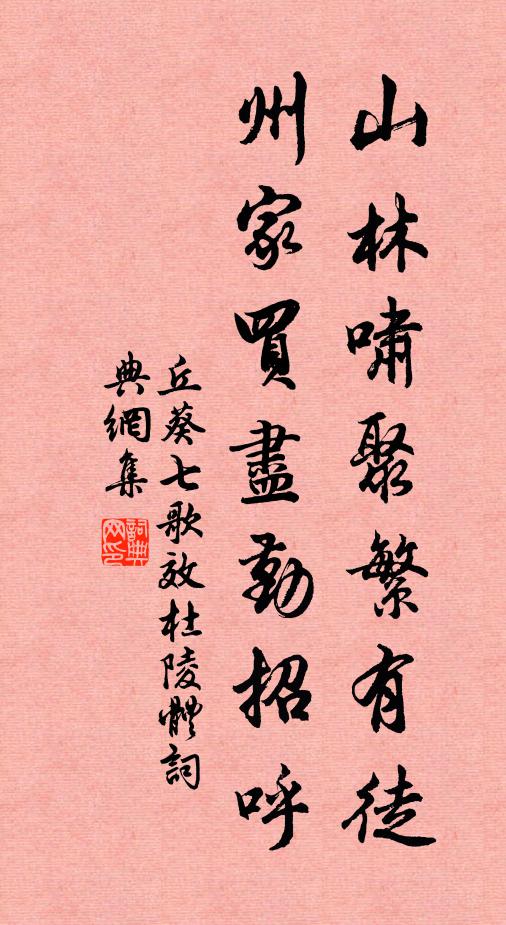 山林嘯聚繁有徒
州家買盡勤招呼
丘葵七歌效杜陵體詞
典網集
詞典
网印